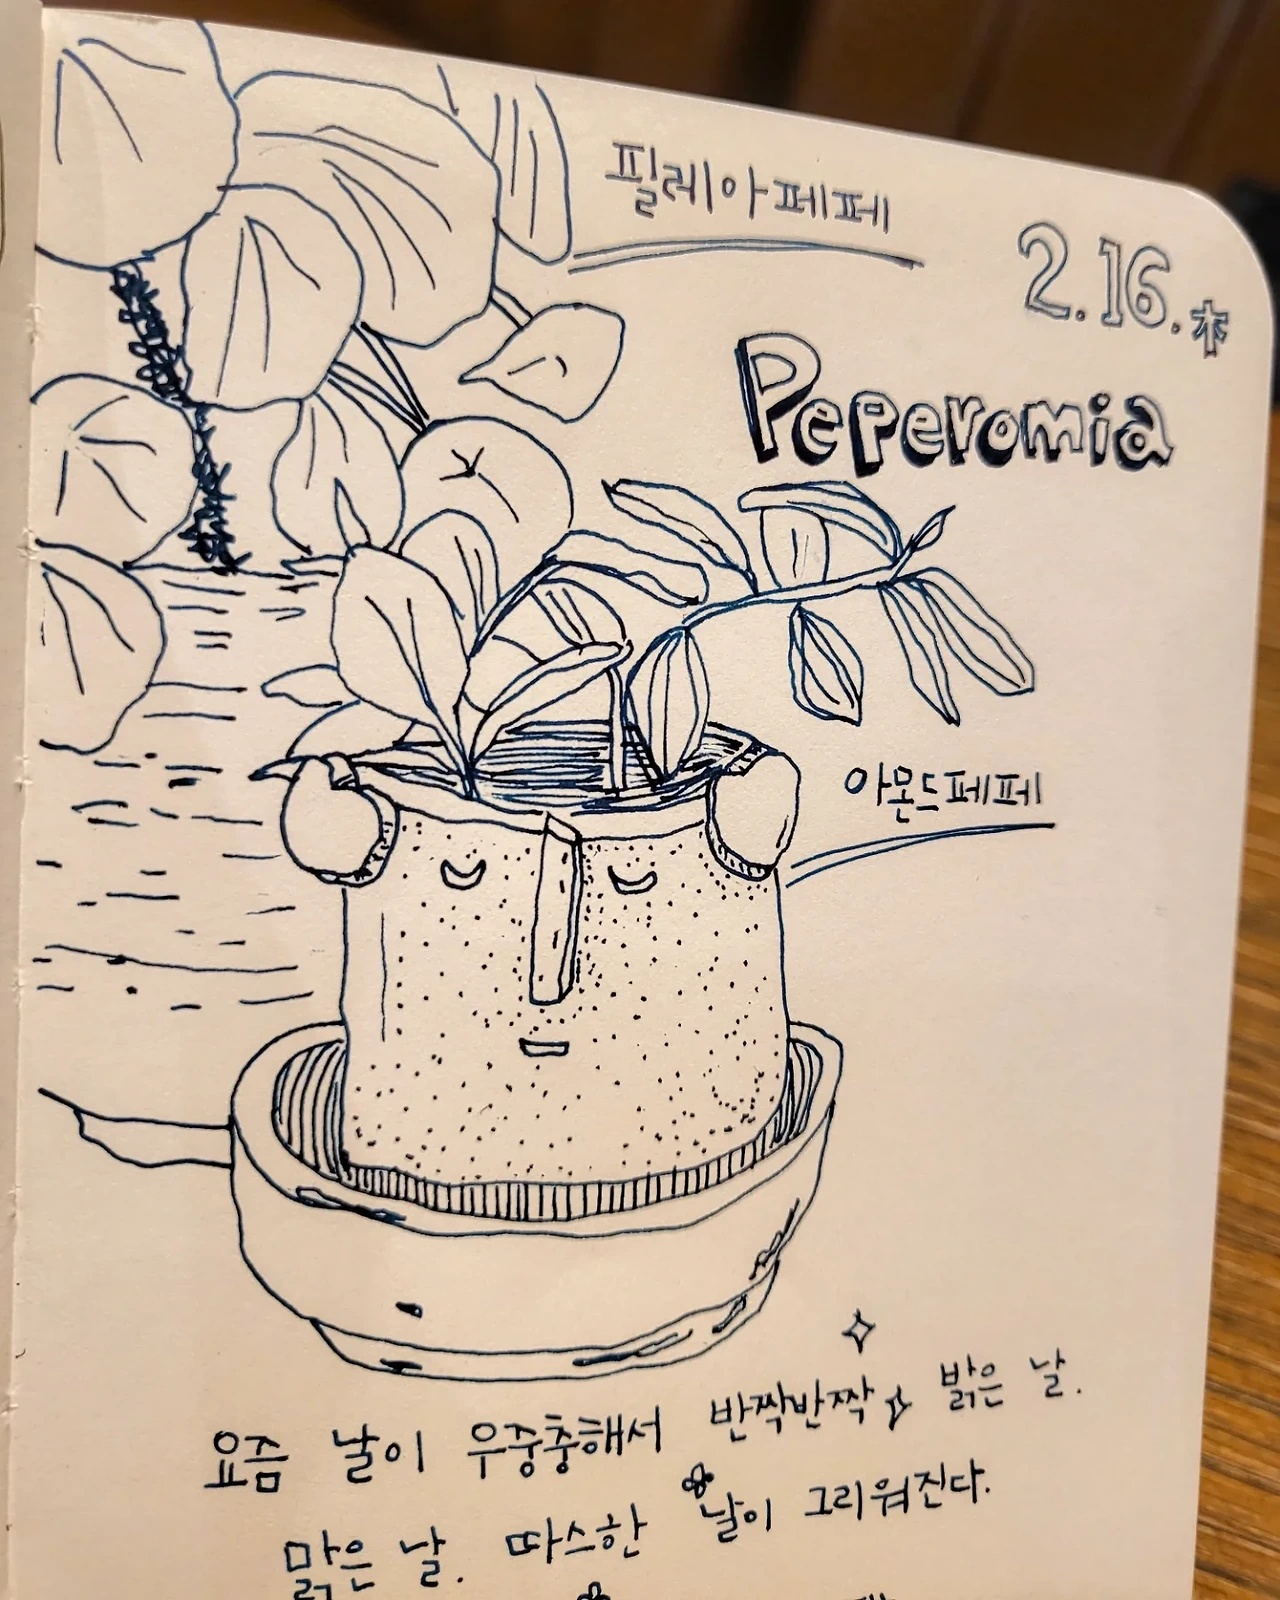 필레아페페
2.16.木
Peperomia
아몬드페페
요즘 날이 우중충해서 반짝반짝 밝은 날.
맑은 날. 따스한 날이 그리워진다.